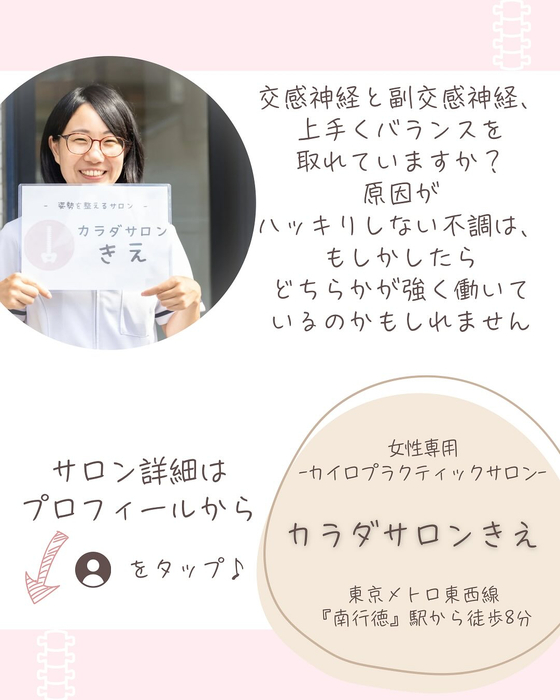 交感神経と副交感神経、
上手くバランスを
取れていますか？
原因が
ハッキリしない不調は、
もしかしたら
どちらかが強く働いて
いるのかもしれません
- 姿勢を整えるサロン -
カラダサロン
きえ
サロン詳細は
プロフィールから
をタップ♪
女性専用
-カイロプラクティックサロン-
カラダサロンきえ
東京メトロ東西線
『南行徳』駅から徒歩8分